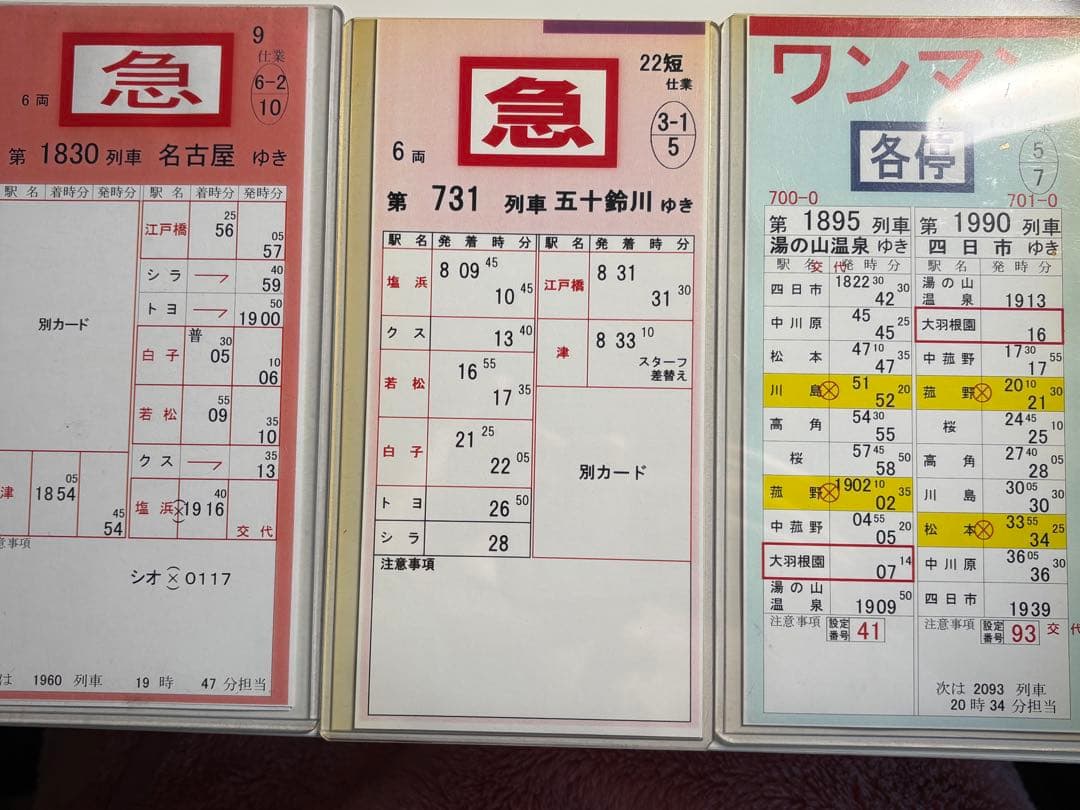 9
仕業
6-2
10
急
6両
第 1830 列車 名古屋 ゆき
駅名 着時分 発時分 駅名 着時分 発時分
別カード
江戸橋 56 25 57 05
シラ 59 40
トヨ 1900 50
白子 普 05 30 06 10
若松 09 55 10 35
クス 13 35
津 1854 05 54 45
塩浜 1916 40
交代
意事項
シオ 0117
は 1960 列車 19時 47分担当
22短
仕業
3-1
5
急
6両
第 731 列車 五十鈴川 ゆき
駅名 発着時分 駅名 発着時分
塩浜 8 09 45 10 45
江戸橋 8 31 31 30
クス 13 40
津 8 33 10
スターフ
差替え
若松 16 55 17 35
白子 21 25 22 05
別カード
トヨ 26 50
シラ 28
注意事項
ワンマン
各停
5
7
700-0
701-0
第 1895 列車
湯の山温泉 ゆき
駅名 発時分
交代
四日市 1822 30 42 30
中川原 45 45 25
松本 47 10 47 35
川島 51 52 20
高角 54 30 55
桜 57 45 58 50
菰野 1902 10 02 35
中菰野 04 55 05 20
大羽根園 07 14
湯の山
温泉 1909 50
注意事項 設定番号 41
第 1990 列車
四日市 ゆき
駅名 発時分
湯の山
温泉 1913
大羽根園 16
中菰野 17 30 17 55
菰野 20 10 21 30
桜 24 45 25 10
高角 27 40 28 05
川島 30 05 30 30
松本 33 55 34 25
中川原 36 05 36 30
四日市 1939
注意事項 設定番号 93 交代
次は 2093 列車
20時34分担当